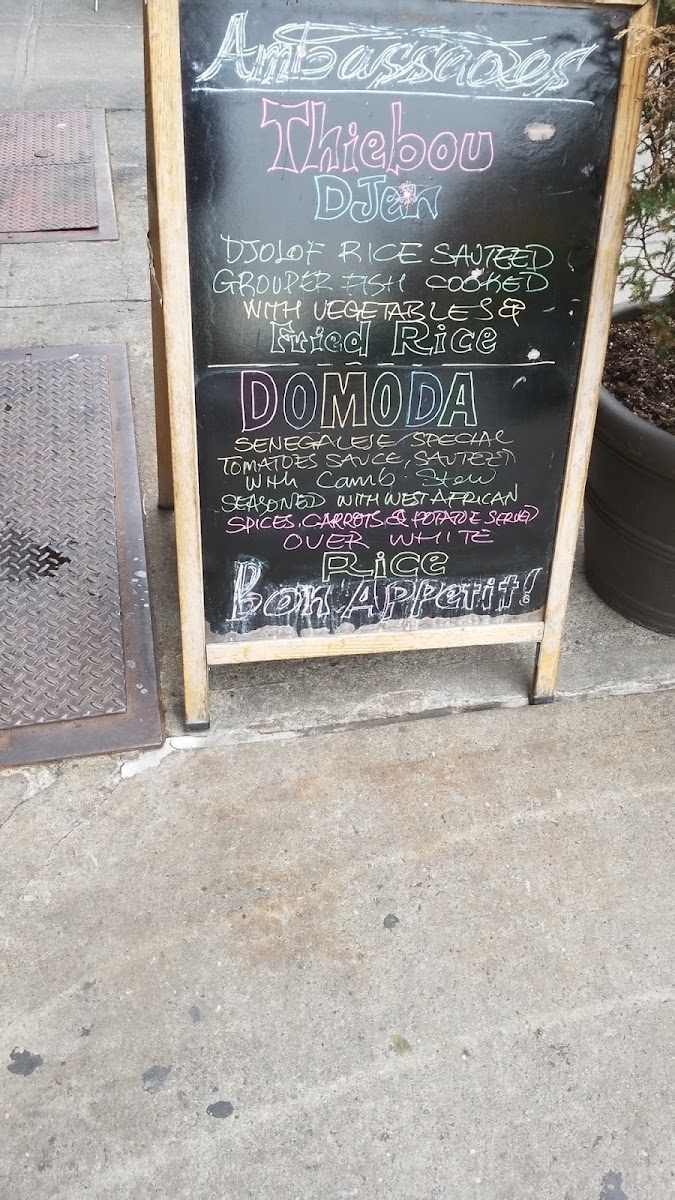 Ambassades
Thiebou
DJen
DJOLOF RICE SAUTEED
GROUPER FISH COOKED
WITH VEGETABLES &
Fried Rice
DOMODA
SENEGALESE SPECIAL
TOMATOES SAUCE, SAUTEED
With Lamb Stew
SEASONED WITH WEST AFRICAN
SPICES, CARROTS & POTATOE SERVED
OVER WHITE
RiCE
Bon APPetit!